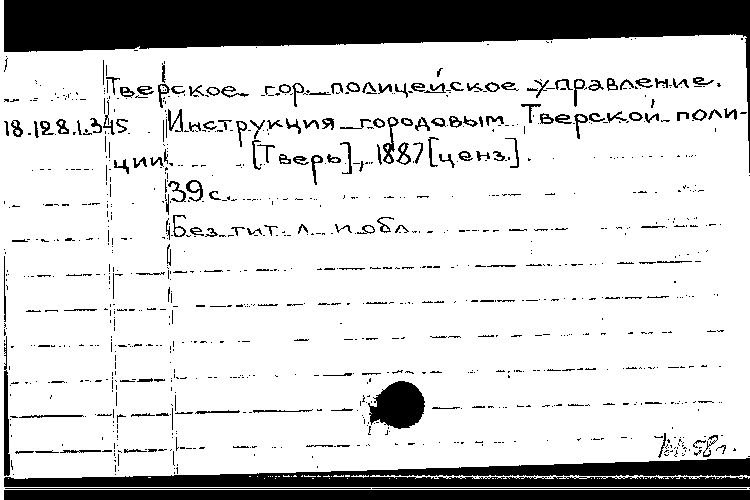 Тверское гор. полицейское управление.
18.128.1.345 Инструкция городовым Тверской поли-
ции. [Тверь], 1887 [ценз.].
39 с.
Без тит. л. и обл.
58 г.